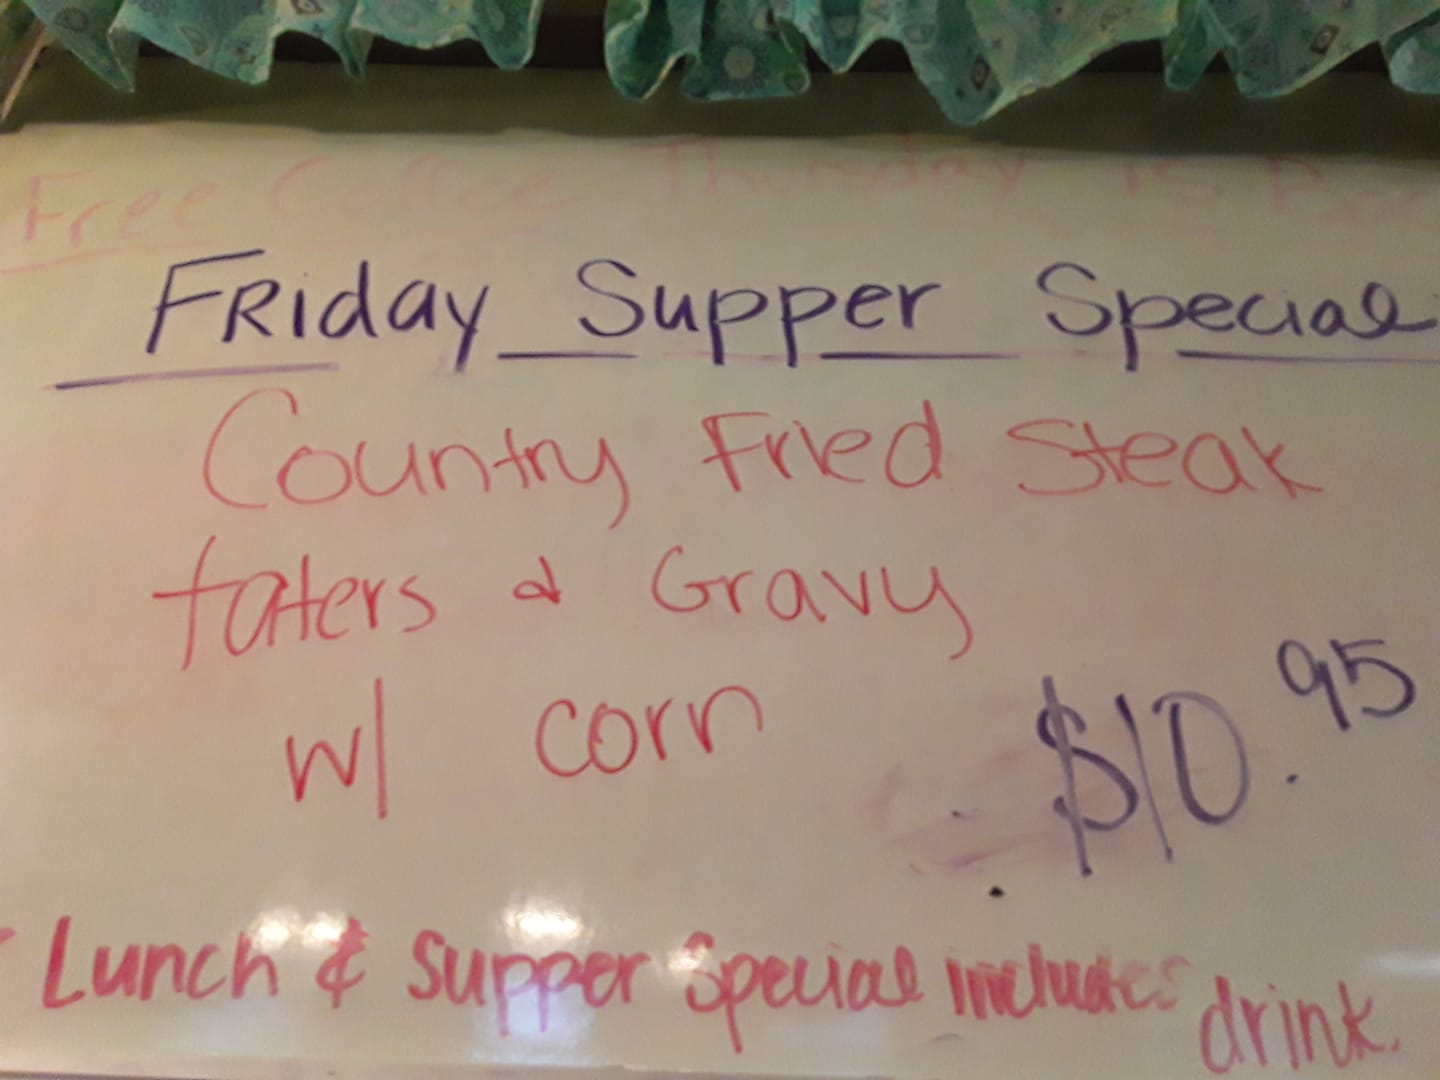 Free Coffee Thursday is Bac
FRiday Supper Special
Country Fried Steak
taters & Gravy
w/ corn
$10.95
Lunch & Supper Special includes drink.